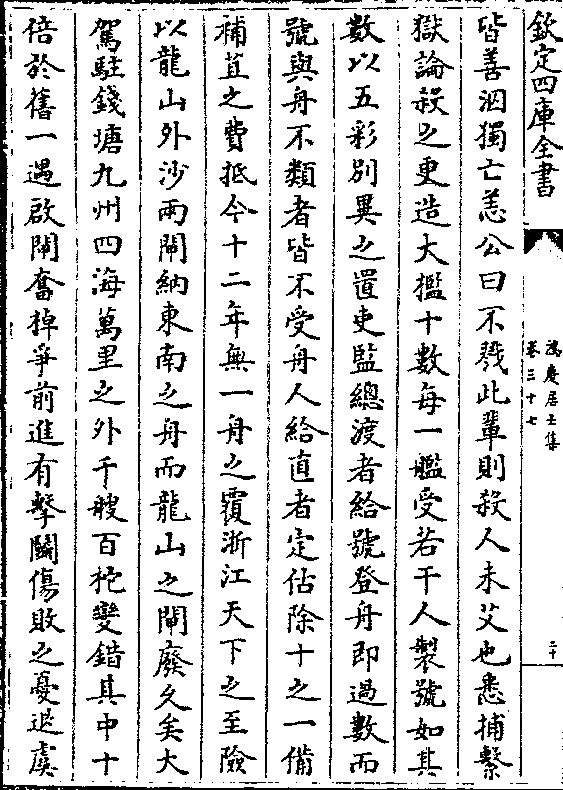 欽定四庫全書
鴻慶居士集
卷三十七
二十
皆善泅獨亡恙公曰不戮此輩則殺人未艾也悉捕繫
獄論殺之更造大艦十數每一艦受若干人製號如其
數以五彩別異之置吏監總渡者給號登舟即過數而
號與舟不類者皆不受舟人給直者定估除十之一備
補苴之費抵今十二年無一舟之覆浙江天下之至險
以龍山外沙兩閘納東南之舟而龍山之閘廢久矣大
駕駐錢塘九州四海萬里之外千艘百柁變錯其中十
倍於舊一遇啟閘奮掉爭前進有擊鬬傷敗之憂退虞